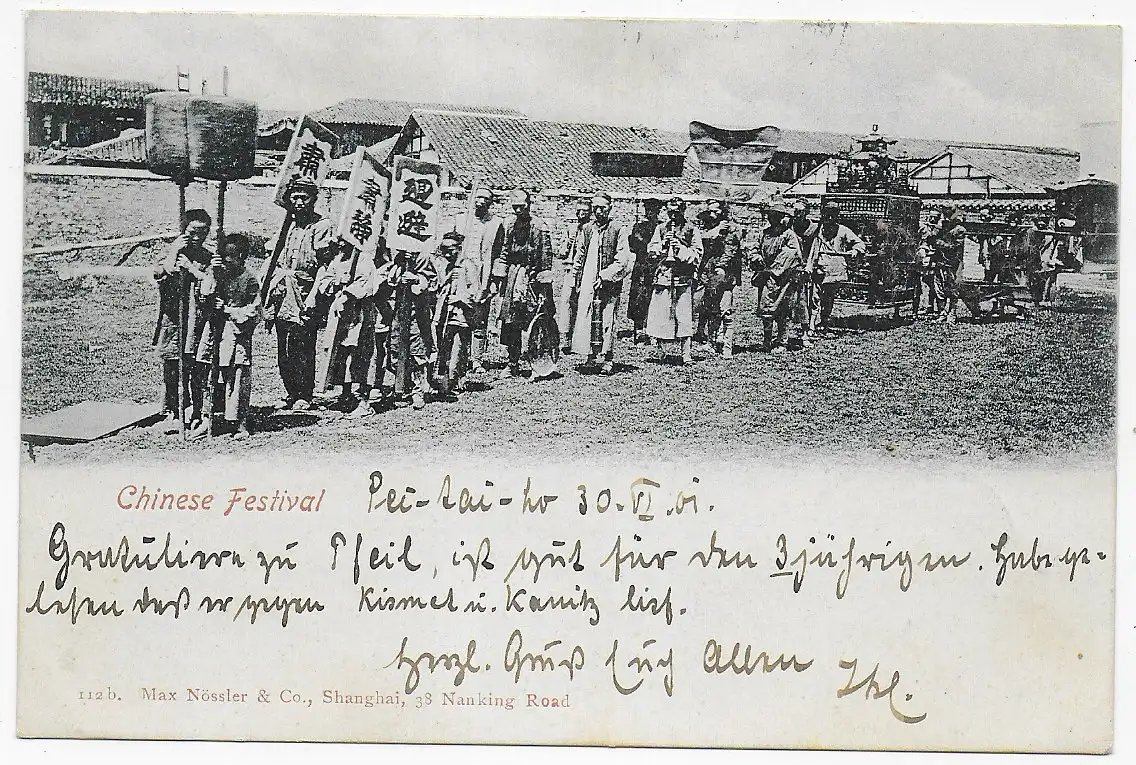 肅靜
肅靜
迴避
Chinese Festival
Pei-tai-ho 30.VI.01.
Gratuliere zu Pfeil, ist gut für den 3jährigen. Habe ge-
lesen daß er gegen Kismet u. Kanitz lief.
Herzl. Gruß Euch Allen
112b. Max Nössler & Co., Shanghai, 38 Nanking Road